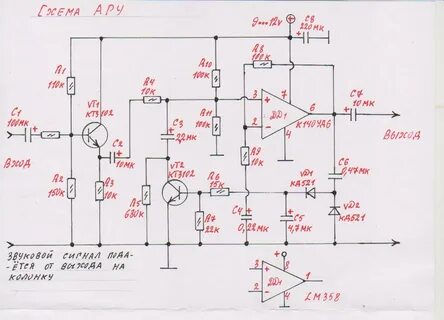 Схема АРУ
9...12v
C8
220мк
R1
110к
R10
100к
R8
100к
R4
10к
VT1
КТ3102
C1
100мк
C2
10мк
C3
22мк
R11
100к
3
7
DD1
К140УД6
2
4
6
C7
10мк
ВХОД
ВЫХОД
R9
10к
VT2
КТ3102
R2
150к
R3
10к
R5
680к
R6
15к
R7
22к
C4
0,22мк
C5
4,7мк
VD1
КД521
C6
0,47мк
VD2
КД521
ЗВУКОВОЙ СИГНАЛ ПОДА-
-ЁТСЯ ОТ ВЫХОДА НА
КОЛОНКУ
3
8
DD1
1
2
4
LM358